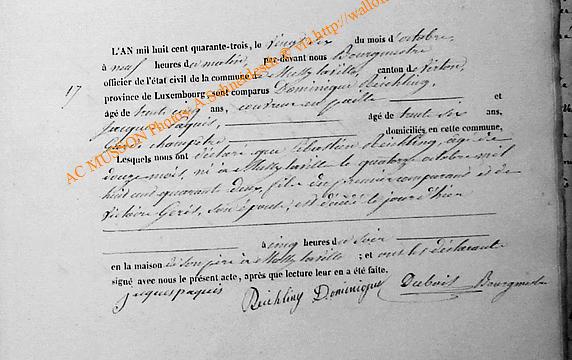 L'AN mil huit cent quarante-trois, le vingt six du mois d'octobre,
à neuf heures du matin, par-devant nous Bourgmestre
officier de l'état civil de la commune de Mussy la ville, canton de Virton,
17 province de Luxembourg, sont comparus Dominique Reichling,
âgé de trente cinq ans, couvreur en paille et
Jacques Paquis, âgé de trente six ans,
Garde champêtre, domiciliés en cette commune,
Lesquels nous ont déclaré que Sébastien Reichling, âgé de
douze mois, né à Mussy la ville le quatorze octobre mil
huit cent quarante deux, fils du premier comparant et de
Victoire Gerét, son épouse, est décédé le jour d'hier
à cinq heures du soir
en la maison de son père à Mussy la ville ; et ont les déclarants
signé avec nous le présent acte, après que lecture leur en a été faite.
jacques paquis Reichling Dominique Dubois Bourgmestre
AC MUSSON Photos A.Schneidesch © via http://wallo